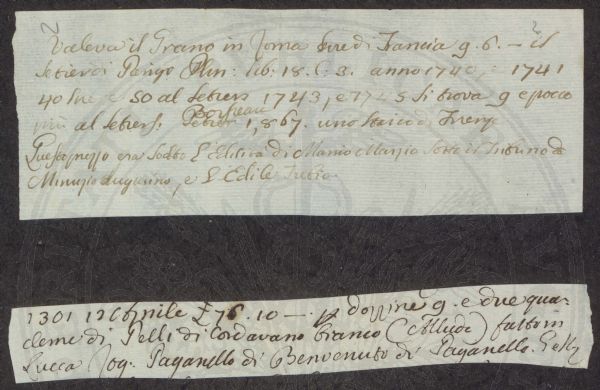 2
Valeva il Grano in Roma lire di Francia 9. 6. — il
Setier di Parigi Plin: lib: 18. C: 3. anno 1740, e 1741
40 lire, e 50 al Setiers 1743, e 1745 si trova 9 e poco
più al Setiers. Boisseau 1,867. uno Staio di Firenze
Questo prezzo era sotto l'Edilità di Manio Marzio sotto il Tribuno di
Minuzio Augurino, e l'Edile Trebio.
1301 12 Aprile £ 76. 10 — . p dozzine 9. e due qua-
derne di Pelli di Cordovano bianco (Allude) fatto in
Lucca Paganello di Benvenuto di Paganello.